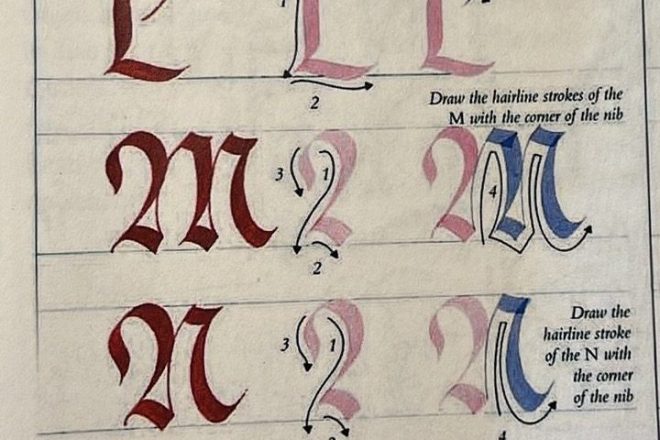 L
1
2
Draw the hairline strokes of the
M with the corner of the nib
M
3 1
2
4
N
3 1
2
4
Draw the
hairline stroke
of the N with
the corner
of the nib